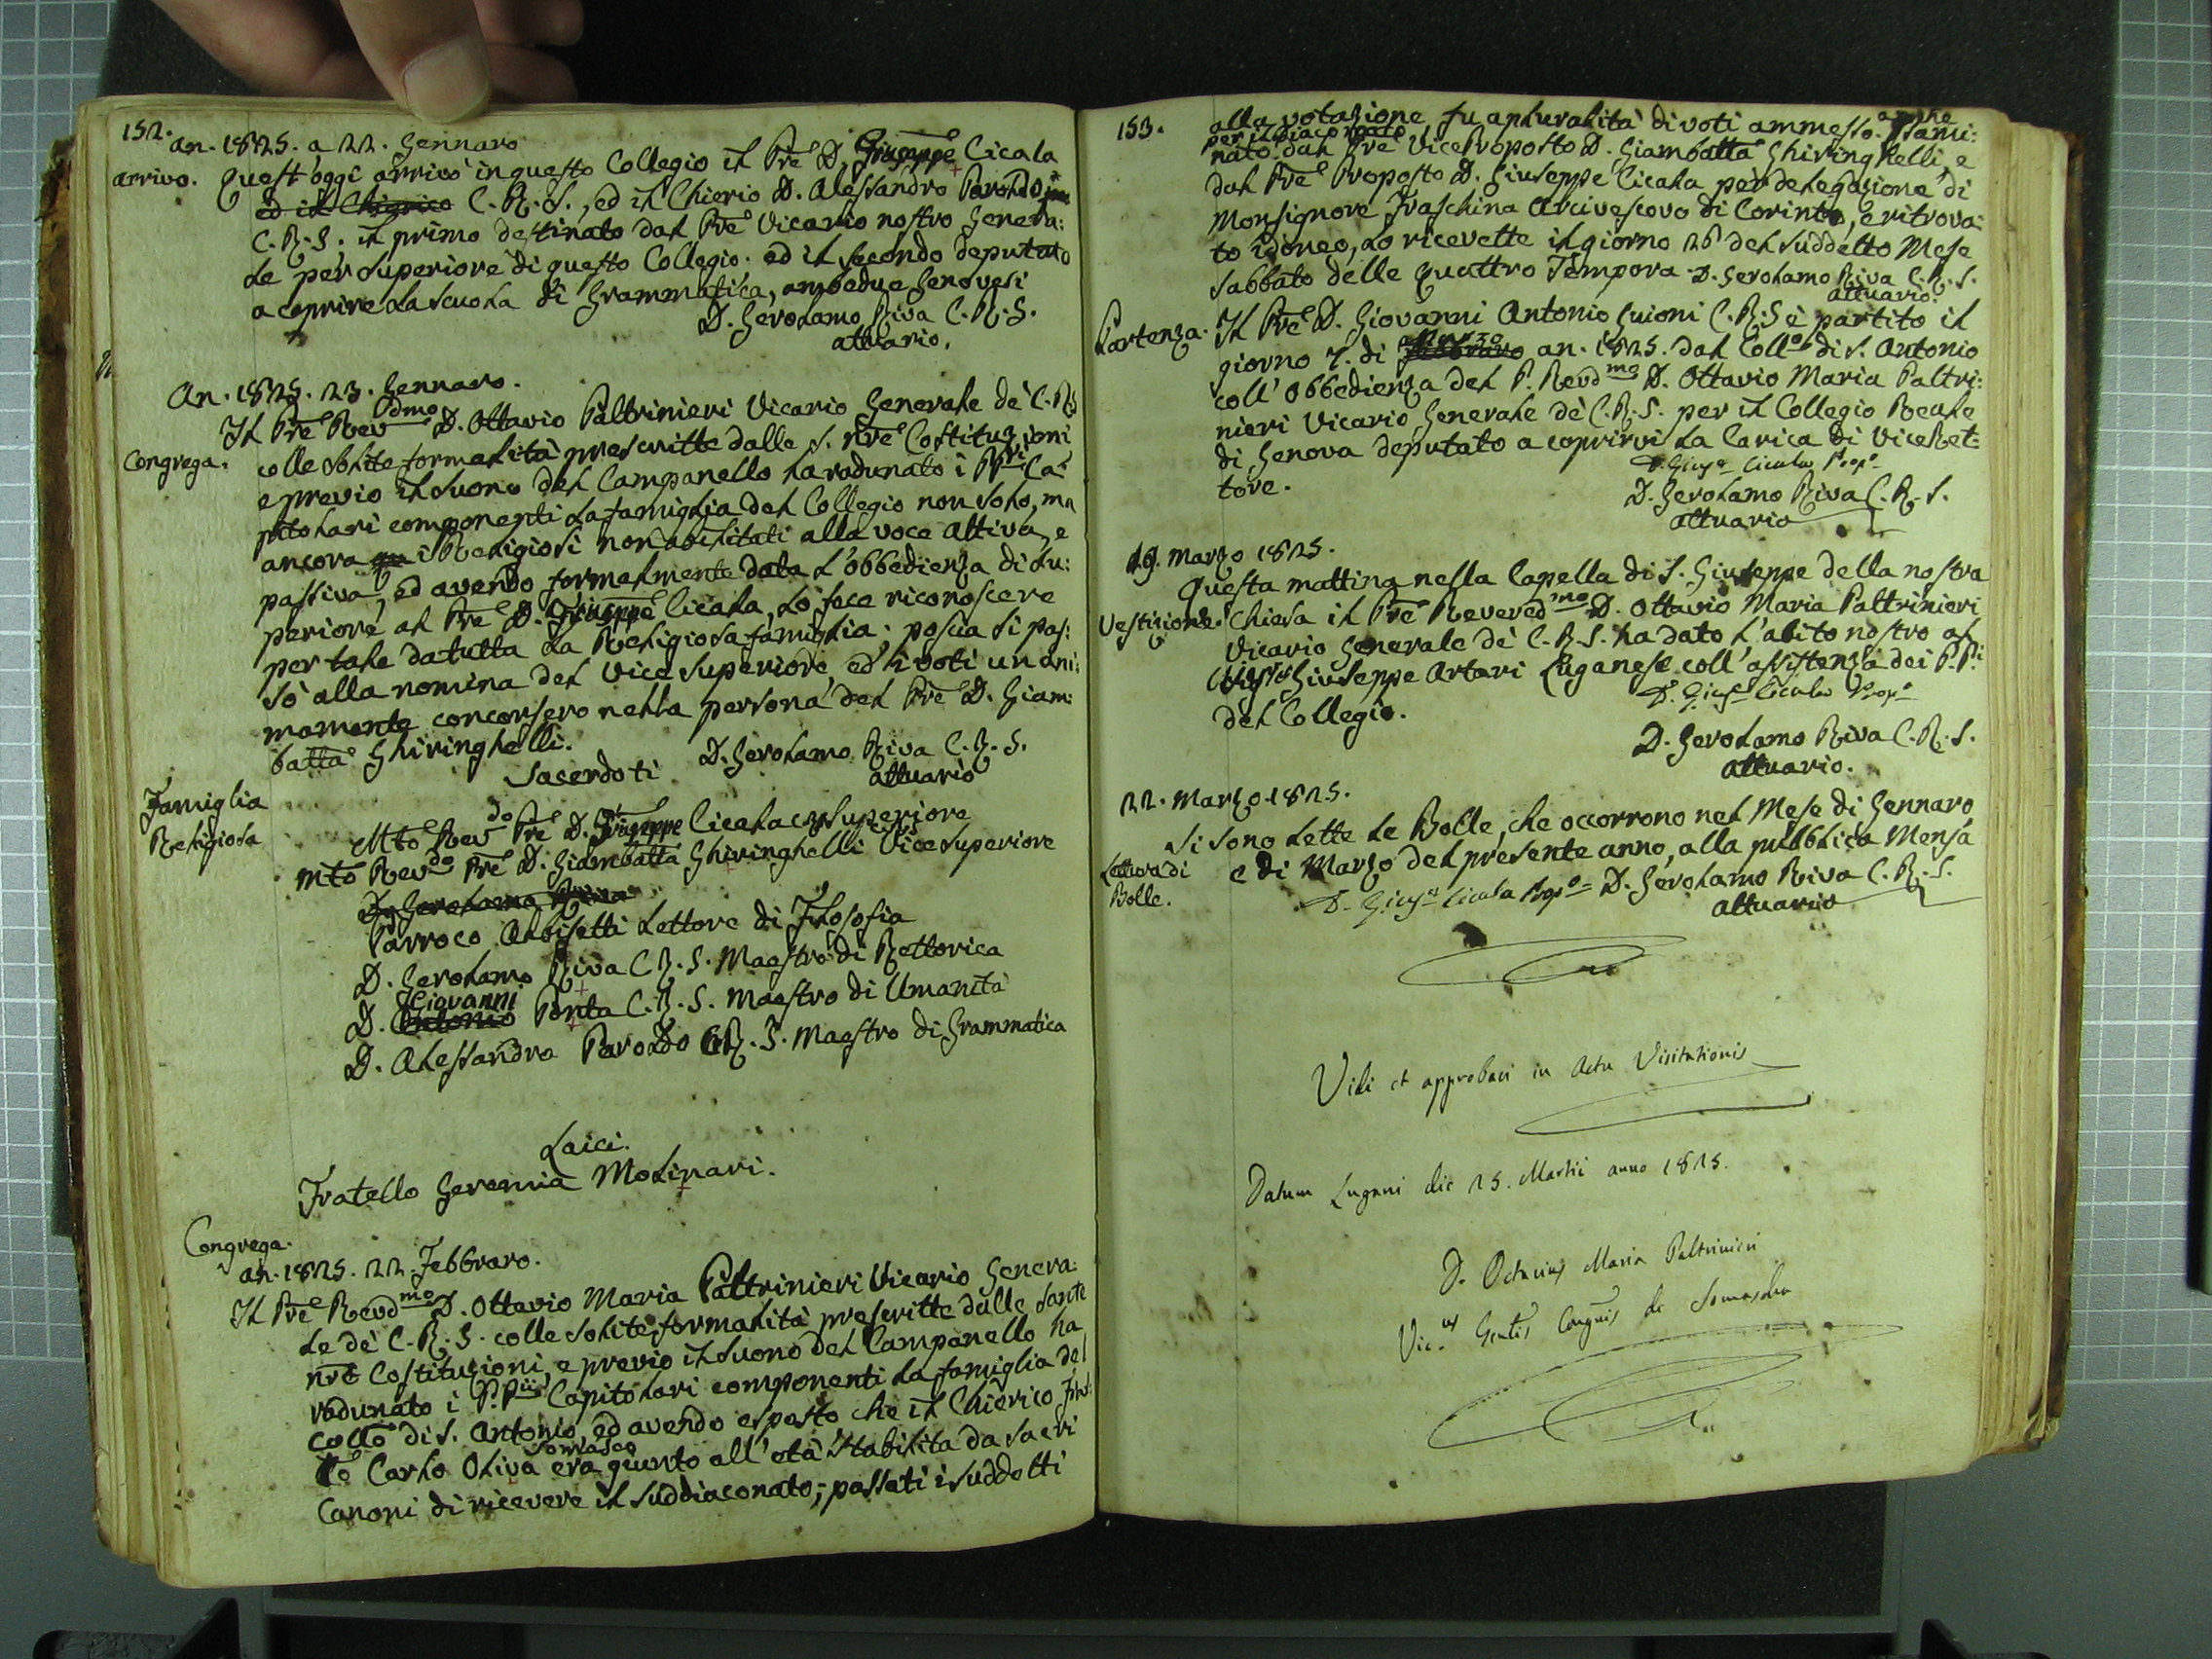 152.
an. 1825. a 22. Gennaro
arrivo. Quest'oggi arrivò in questo Collegio il Pre D. Giuseppe Cicala
ed il Chierico C. R. S., ed il Chierio D. Alessandro Parondo
C. R. S. il primo destinato dal Pre Vicario nostro Genera:
le per Superiore di questo Collegio. ed il secondo deputato
a coprire la scuola di Grammatica, ambedue Genovesi
D. Gerolamo Riva C. R. S.
attuario.
An. 1825. 23. Gennaro.
Il Pre Revdmo D. Ottavio Paltrinieri Vicario Generale de' C. R. S.
Congrega. colle solite formalità prescritte dalle S. nre Costituzioni
e previo il suono del Campanello ha radunato i PPri Ca:
pitolari componenti la famiglia del Collegio non solo, ma
ancora i Religiosi non abilitati alla voce attiva, e
passiva, ed avendo formalmente data l'obbedienza di Su:
periore al Pre D. Giuseppe Cicala, lo fece riconoscere
per tale da tutta la Religiosa famiglia; poscia si pas:
sò alla nomina del Vice Superiore, ed i voti unani:
mamente concorsero nella persona del Pre D. Giam:
batta Ghiringhelli.
D. Gerolamo Riva C. R. S.
attuario
Sacerdoti
Famiglia
Religiosa
Mto Revdo Pre D. Giuseppe Cicala Superiore
Mto Revdo Pre D. Giambatta Ghiringhelli Vice Superiore
D. Gerolamo Riva
Parroco Albisetti Lettore di Filosofia
D. Gerolamo Riva C. R. S. Maestro di Rettorica
D. Antonio Giovanni Ponta C. R. S. Maestro di Umanità
D. Alessandro Parondo C. R. S. Maestro di Grammatica
Laici.
Fratello Geremia Molinari.
Congrega.
an. 1825. 22. Febbraro.
Il Pre Revdmo D. Ottavio Maria Paltrinieri Vicario Genera:
le de' C. R. S. colle solite formalità prescritte dalle Sante
nre Costituzioni, e previo il suono del Campanello ha
radunato i P. Prii Capitolari componenti la famiglia del
Collo di S. Antonio, ed avendo esposto che il Chierico
Carlo Oliva Somasco era giunto all'età stabilita da sacri
Canoni di ricevere il Suddiaconato; passati i suddetti
153.
alla votazione fu a pluralità di voti ammesso. anche Esami:
per il Diaconato
nato dal Pre Vice Proposto D. Giambatta Ghiringhelli, e
dal Pre Proposto D. Giuseppe Cicala per delegazione di
Monsignore Fraschina Arcivescovo di Corinto, e ritrova:
to idoneo, lo ricevette il giorno 26 del suddetto Mese
Sabbato delle quattro Tempora. D. Gerolamo Riva C. R. S.
attuario.
Partenza. Il Pre D. Giovanni Antonio Guioni C. R. S è partito il
giorno 7. di Febbraro Marzo an. 1825. dal Collo di S. Antonio
coll'obbedienza del P. Revdmo D. Ottavio Maria Paltri:
nieri Vicario Generale de' C. R. S. per il Collegio Reale
di Genova deputato a coprirvi la Carica di ViceRet:
tore.
D. Giuse Cicala Propo
D. Gerolamo Riva C. R. S.
attuario
19. Marzo 1825.
Questa mattina nella Capella di S. Giuseppe della nostra
Vestizione. Chiesa il Pre Reveredmo D. Ottavio Maria Paltrinieri
Vicario Generale de' C. R. S. ha dato l'abito nostro al
Giuseppe Artari Luganese coll'assistenza dei P.Pi
del Collegio.
D. Giuse Cicala Propo
D. Gerolamo Riva C. R. S.
attuario.
22. Marzo 1825.
Si sono lette le Bolle, che occorrono nel Mese di Gennaro
Lettura di
Bolle.
e di Marzo del presente anno, alla pubblica Mensa
D. Giuse Cicala Propo D. Gerolamo Riva C. R. S.
attuario
Vidi et approbavi in Actu Visitationis
Datum Lugani die 25. Martii anno 1825.
D. Octavius Maria Paltrinieri
Vic.us Gnlis Congnis de Somascha